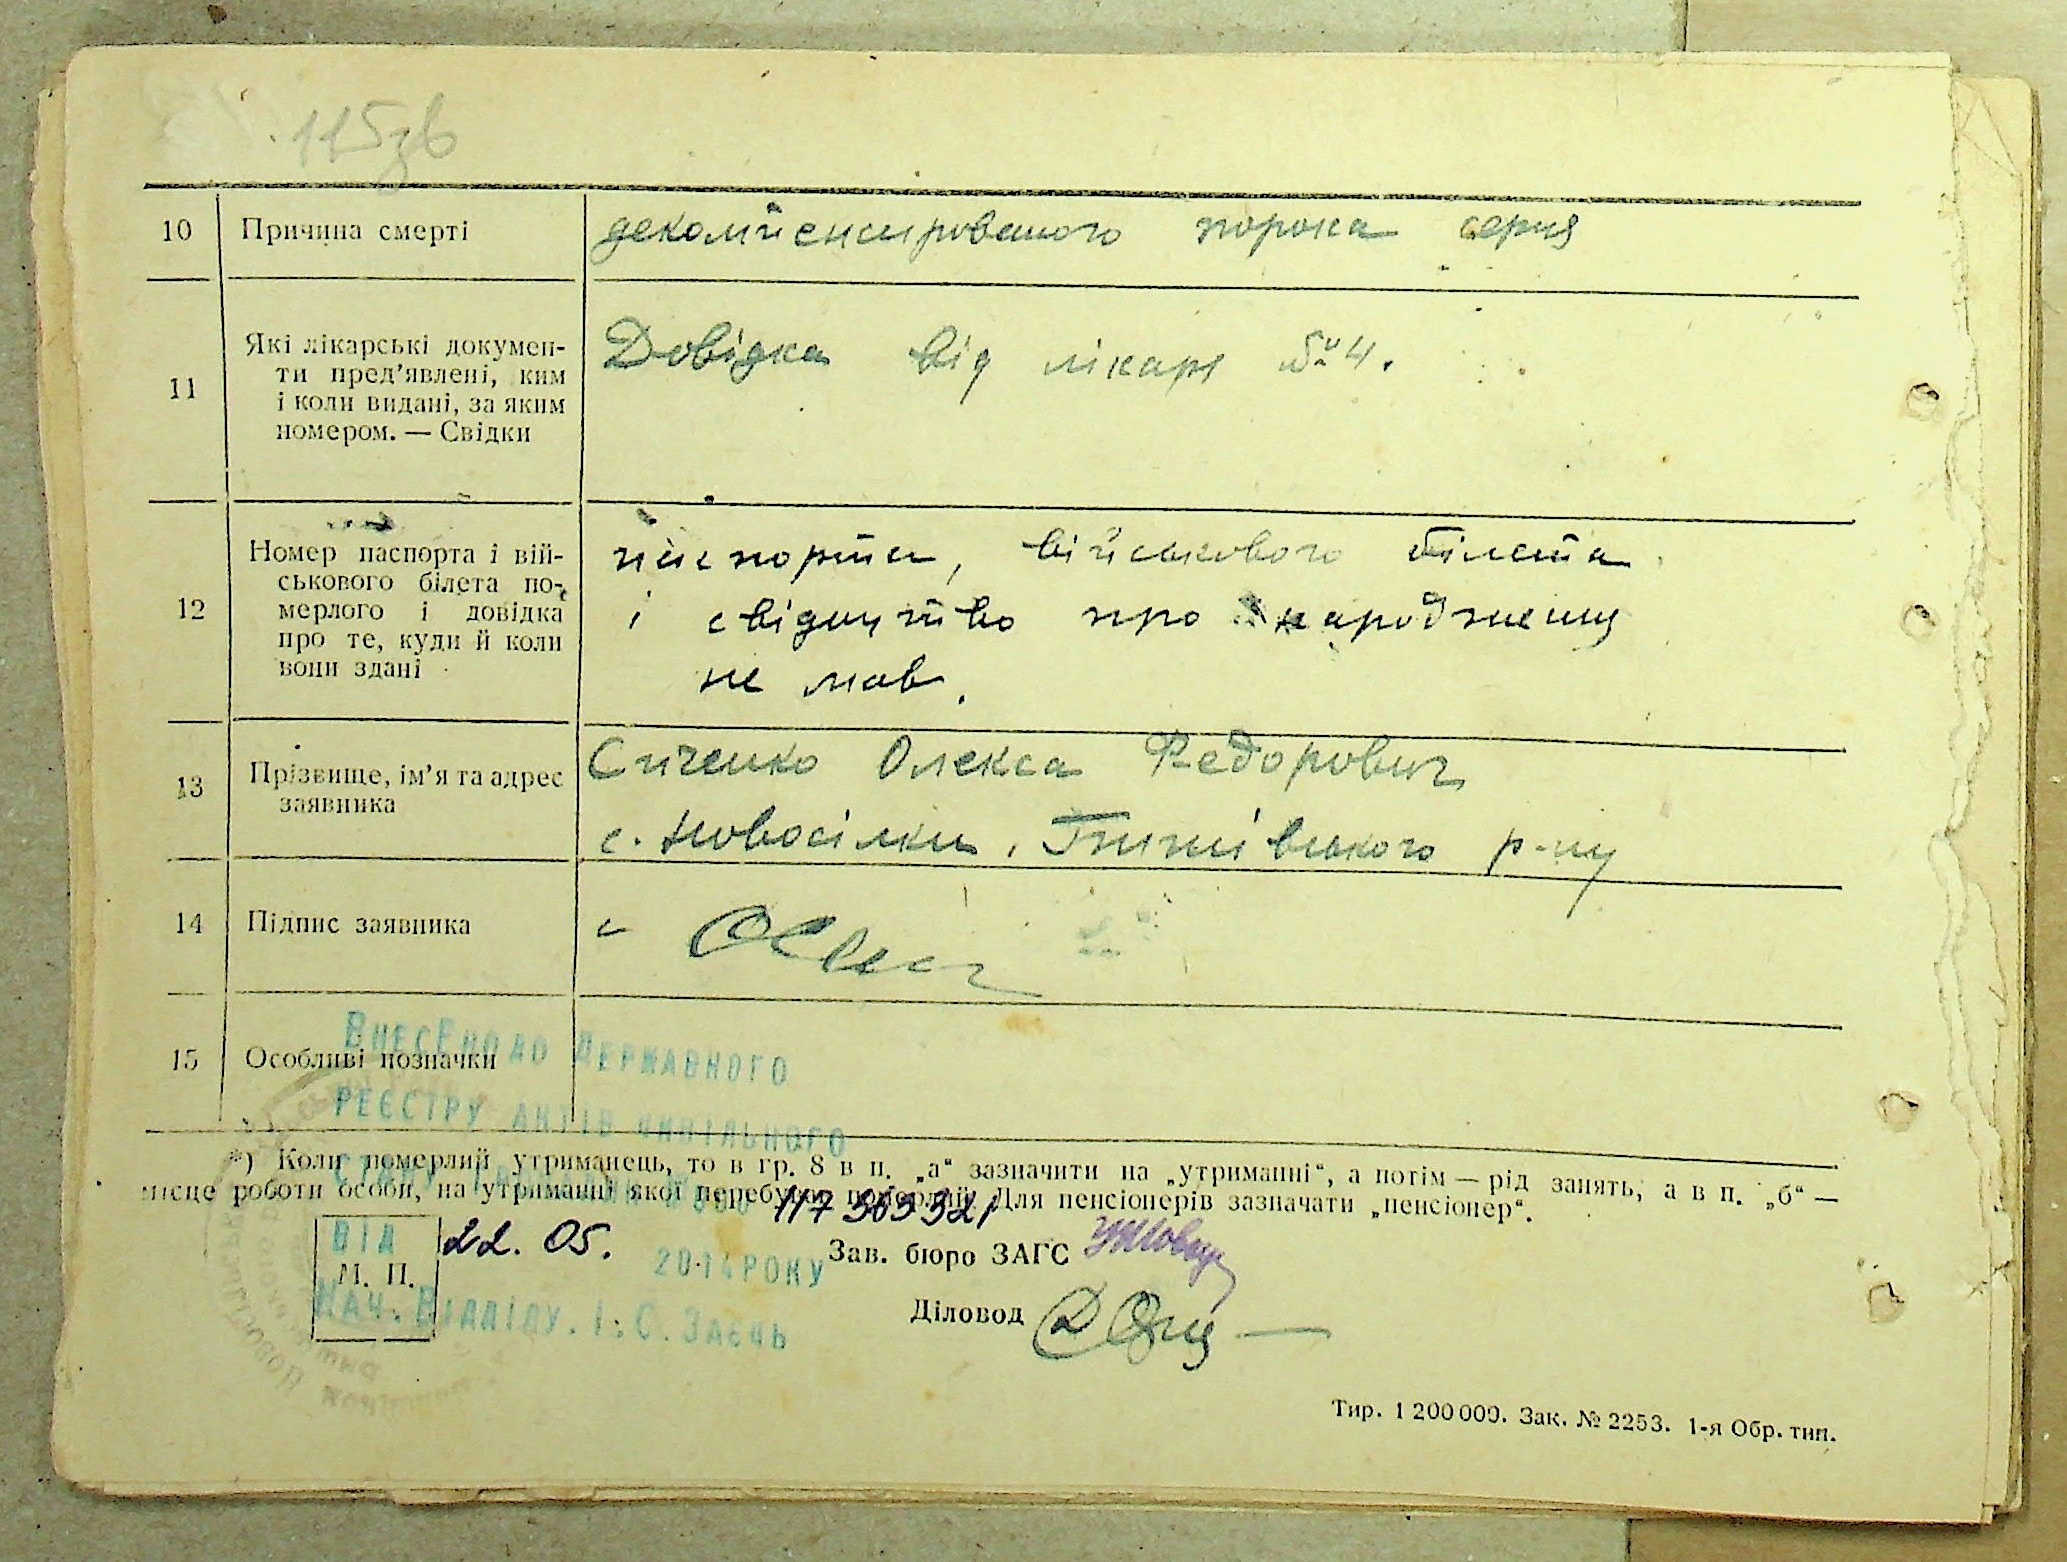 115зв
10 Причина смерті декомпенсированого порока серця
11 Які лікарські докумен-
ти пред’явлені, ким
і коли видані, за яким
номером. — Свідки
Довідка від лікаря № 4.
12 Номер паспорта і вій-
ськового білета по-
мерлого і довідка
про те, куди й коли
вони здані
паспорта, військового білета
і свідоцтво про народження
не мав.
13 Прізвище, ім’я та адрес
заявника
Сиченко Олекса Федорович
с. Новосілки, р-ну
14 Підпис заявника
15 Особливі позначки
Внесено до Державного
реєстру актів цивільного
*) Коли померлий утриманець, то в гр. 8 в п. „а“ зазначити на „утриманні“, а потім — рід занять, а в п. „б“ —
місце роботи особи, на утриманні якої перебував померлий. Для пенсіонерів зазначати „пенсіонер“.
від 22. 05. 2014 року
М. П.
Нач. відділу. І. С. Заєць
Зав. бюро ЗАГС
Діловод
Тир. 1 200 000. Зак. № 2253. 1-я Обр. тип.